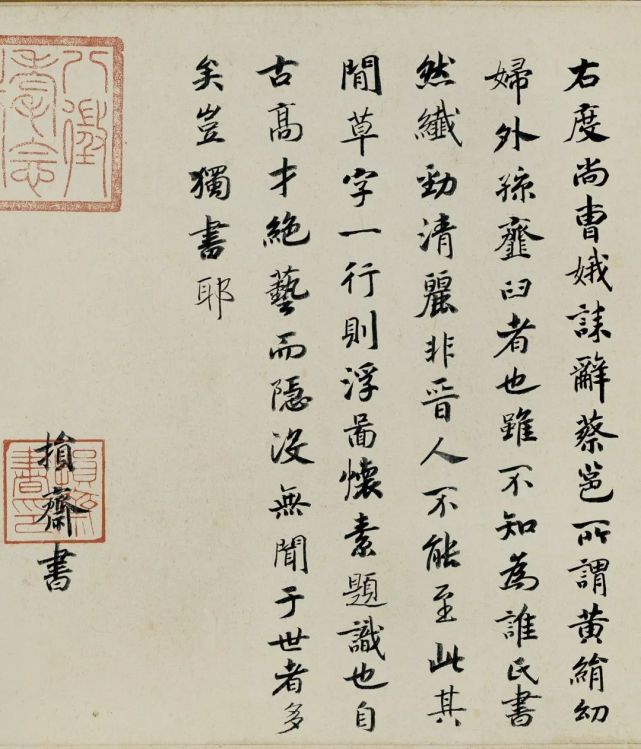 右度尚曹娥誄辭蔡邕所謂黃絹幼
婦外孫虀臼者也雖不知為誰氏書
然纖勁清麗非晉人不能至此其
間草字一行則浮圖懷素題識也自
古高才絕藝而隱沒無聞于世者多
矣豈獨書耶
損齋書